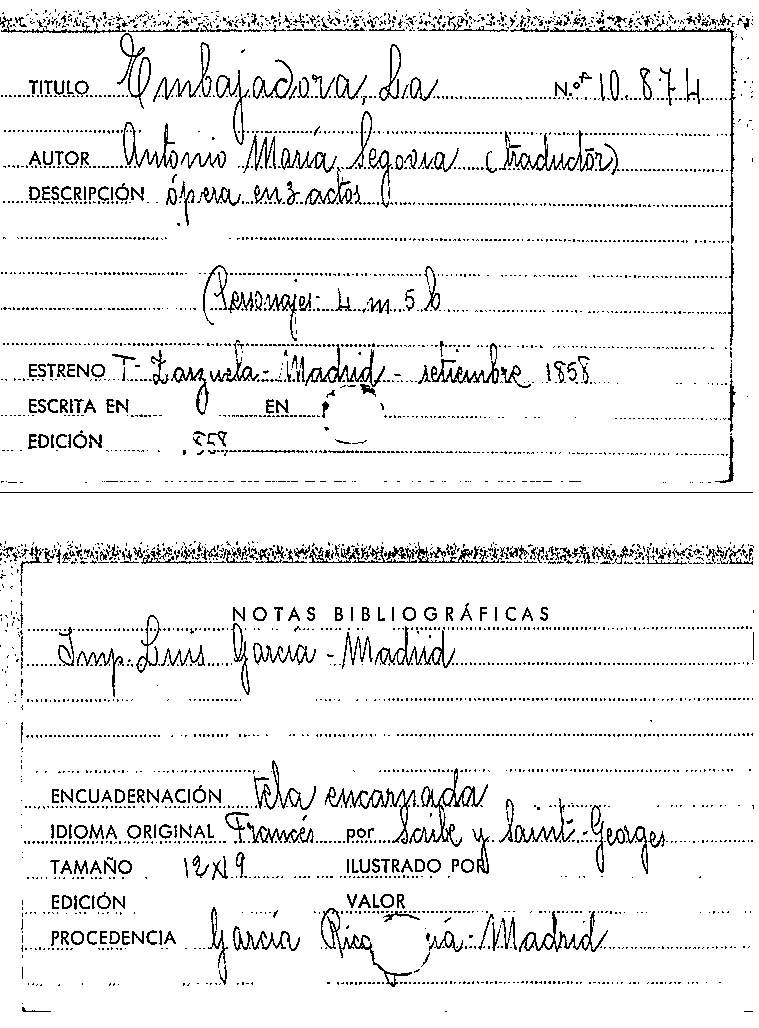 TITULO Embajadora, La N.º 10.874
AUTOR Antonio María Segovia (traductor)
DESCRIPCIÓN ópera en 3 actos
Personajes- 4 m 5 h
ESTRENO T- Zarzuela - Madrid - setiembre 1858
ESCRITA EN EN
EDICIÓN 858
NOTAS BIBLIOGRÁFICAS
Imp. Luis García - Madrid
ENCUADERNACIÓN tela encarnada
IDIOMA ORIGINAL Francés por Scribe y Saint-Georges
TAMAÑO 12x19 ILUSTRADO POR
EDICIÓN VALOR
PROCEDENCIA García Rico - Madrid